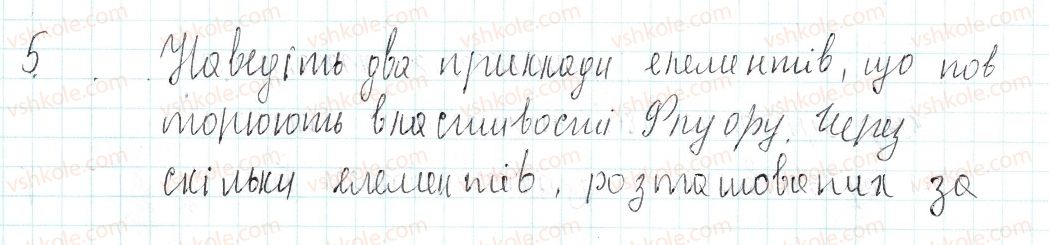 5. Наведіть два приклади елементів, що пов
торюють властивості Флуору. Через
скільки елементів, розташованих за